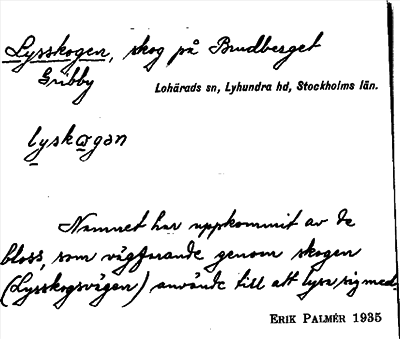 Lysskogen, skog på Brudberget
Gribby
Lohärads sn, Lyhundra hd, Stockholms län.
lyskogən
Namnet har uppkommit av de
bloss, som vägfarande genom skogen
(Lysskogsvägen) använde till att lysa sig med.
ERIK PALMÉR 1935